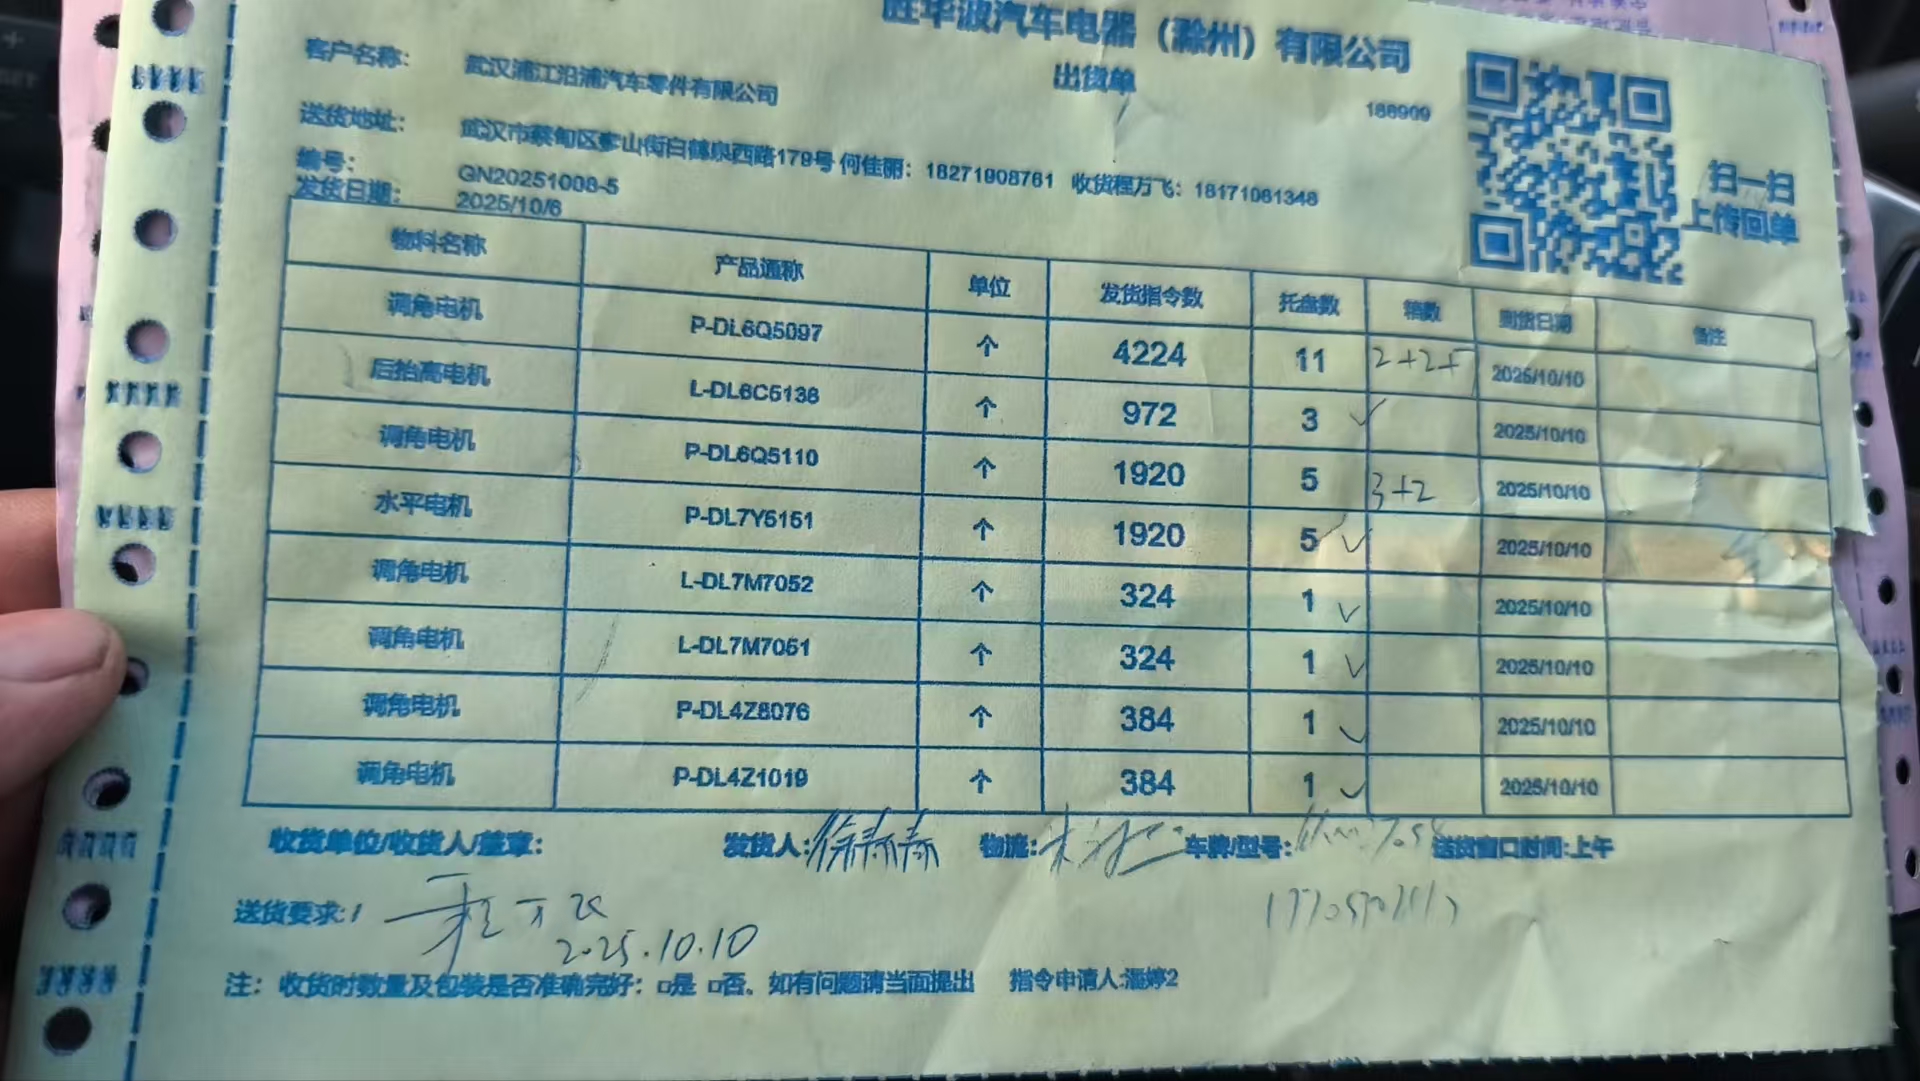 胜华波汽车电器（滁州）有限公司
出货单
188909
客户名称： 武汉浦江沿浦汽车零件有限公司
送货地址： 武汉市蔡甸区奓山街白鹤泉西路179号 何佳丽：18271908761 收货程万飞：18171061348
编号： GN20251008-5
发货日期： 2025/10/6
扫一扫
上传回单
物料名称 产品通称 单位 发货指令数 托盘数 箱数 到货日期 备注
调角电机 P-DL6Q5097 个 4224 11 2+2+5 2025/10/10
后抬高电机 L-DL6C5138 个 972 3 ✓ 2025/10/10
调角电机 P-DL6Q5110 个 1920 5 3+2 2025/10/10
水平电机 P-DL7Y5151 个 1920 5 ✓ 2025/10/10
调角电机 L-DL7M7052 个 324 1 ✓ 2025/10/10
调角电机 L-DL7M7051 个 324 1 ✓ 2025/10/10
调角电机 P-DL4Z8076 个 384 1 ✓ 2025/10/10
调角电机 P-DL4Z1019 个 384 1 ✓ 2025/10/10
收货单位/收货人/盖章： 发货人:徐春春 物流: 车牌/型号: 送货窗口时间:上午
送货要求:/ 程万飞
2025.10.10
注： 收货时数量及包装是否准确完好：□是 □否。如有问题请当面提出 指令申请人:潘婷2